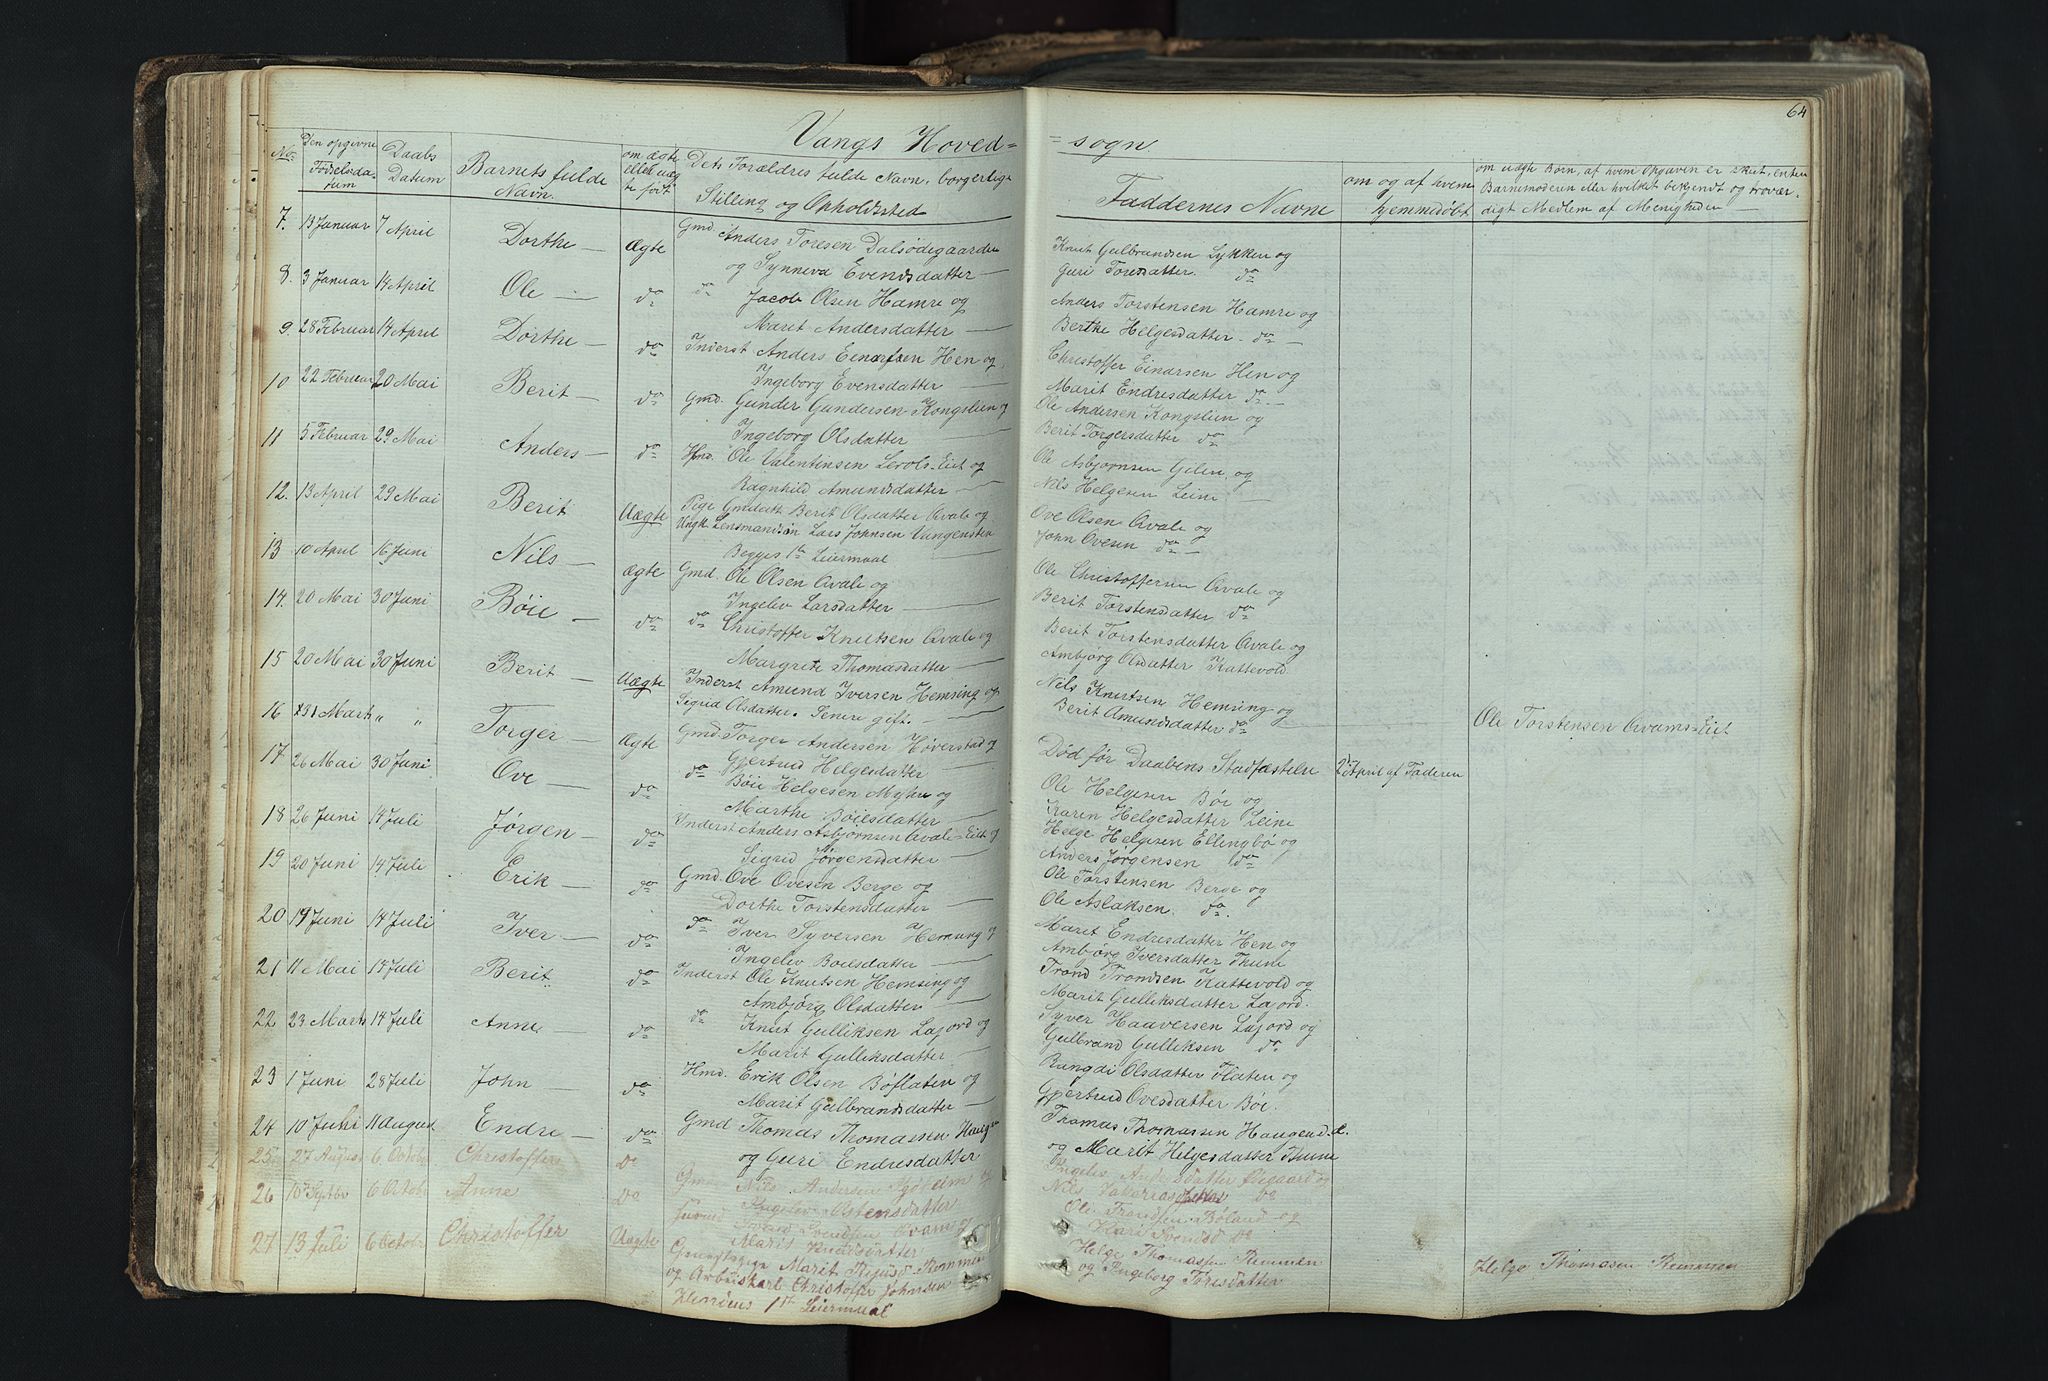 64
Vangs Hoved=
=sogn.
No. Den opgivne Fødselsdatum Daabs Datum Barnets fulde Navn. om ægte eller uægte født Det's Forældres fulde Navn, borgerlige Stilling og Opholdssted Faddernes Navne om og af hvem hjemmedøbt om uægte Børn, af hvem Opgaven er skeet, enten Barnemoderen eller hvilket bekjendt og troværdigt Medlem af Menigheden
7. 13 Januar 7 April Dorthe — Ægte Gmd. Anders Toresen Dalsødegaarden
og Synneva Evensdatter —
Knut Gulbrandsen Lykken og
Guri Toresdatter do
8. 3 Januar 14 April Ole — do do Jacob Olsen Hamre og
Marit Andersdatter —
Anders Torstensen Hamre og
Berthe Helgesdatter do —
9. 28 Februar 14 April Dorthe — do Inderst Anders Einarsen Hen og
Ingeborg Evensdatter —
Christoffer Einarsen Hen og
Marit Endresdatter do —
10 22 Februar 20 Mai Berit — do Gmd. Gunder Gundersen Kongslien og
Ingeborg Olsdatter
Ole Andersen Kongslien og
Berit Torgersdatter do
11 5 Februar 29 Mai Anders — do Hmd. Ole Valentinsen Lerols-Eiet og
Ragnhild Amundsdatter —
Ole Asbjørnsen Gilen og
Nils Helgesen Leine —
12. 13 April 29 Mai Berit Uægte Pige Gmdath. Berit Olsdatter Qvale og
Ungk. Lensmandsøn Lars Johnsen Vangensten
Begges 1te Leiermaal
Ove Olsen Qvale og
John Ovesen do —
13 10 April 16 Juni Nils — ægte Gmd. Ole Olsen Qvale og
Ingelev Larsdatter —
Ole Christoffersen Qvale og
Berit Torstensdatter do
14. 20 Mai 30 Juni Bøie — do do Christoffer Knutsen Qvale og
Margrete Thomasdatter —
Berit Torstensdatter Qvale og
Ambjørg Olsdatter Kattevold
15 20 Mai 30 Juni Berit — Uægte Inderst Amund Iversen Hemsing og
Sigrid Olsdatter. Senere gift. —
Nils Knutsen Hemsing og
Berit Amundsdatter do
Ole Torstensen Qvams-Eiet
16 31 Marts " " Torger — Ægte Gmd. Torger Andersen Høverstad og
Gjertrud Helgesdatter —
Død før Daabens Stadfæstelse 2 April af Faderen
17 26 Mai 30 Juni Ove — do do Bøie Helgesen Myhre og
Marthe Bøiesdatter —
Ole Helgesen Bøe og
Karen Helgesdatter Leine
18 26 Juni 14 Juli Jørgen — do Inderst Anders Asbjørnsen Qvale-Eiet og
Sigrid Jørgensdatter —
Helge Helgesen Ellingbø og
Anders Jørgensen do
19 20 Juni 14 Juli Erik — do Gmd. Ove Ovesen Berge og
Dorthe Torstensdatter —
Ole Torstensen Berge og
Ole Aslaksen. do.
20 19 Juni 14 Juli Iver — do do Iver Syversen Hemsing og
Ingelev Boiesdatter —
Marit Endresdatter Hen og
Ambjørg Iversdatter Thune
21 11 Mai 14 Juli Berit do Inderst Ole Knutsen Hemsing og
Ambjørg Olsdatter —
Trond Trondsen Kattevold og
Marit Gulliksdatter Lajord.
22 23 Marts 14 Juli Anne — do do Knut Gulliksen Lajord og
Marit Gulliksdatter —
Syver Haaversen Lajord og
Gulbrand Gulliksen do
23 1 Juni 28 Juli John — do Hmd. Erik Olsen Bøflaten og
Marit Gulbrandsdatter —
Rangdi Olsdatter Flaten og
Gjertrud Ovesdatter Bøe.
24 10 Juni 11 August Endre — do Gmd Thomas Thomassen Haugen
og Guri Endresdatter
Thomas Thomassen Haugen d. æ.
og Marit Helgesdatter Thune
25 27 August 6 October Christoffer do Gmd Nils Andersen
Ingelev Ostensdatter
Ingelev Andersdatter Ødegaard og
Nils do
26 10 Septbr 6 Octob Anne do Svend Svendsen Qvam og
Marit Knudsdatter
Ole Trondsen Bøland og
Kari Svendsd do
27 13 Juli 6 Octob Christoffer Uægte Marit Remmen
og Arbeidskarl Christoffer Johnsen
1ste Leiermaal
Helge Thomassen Remmen
og Ingeborg Toresdatter
Helge Thomasen Remmen